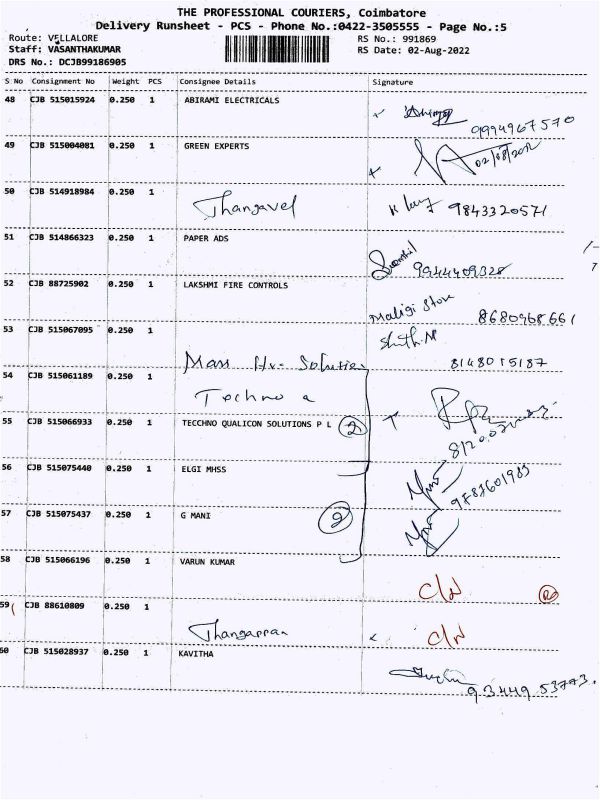 THE PROFESSIONAL COURIERS, Coimbatore
Delivery Runsheet - PCS - Phone No.:0422-3505555 - Page No.:5
Route: VELLALORE
RS No.: 991869
Staff: VASANTHAKUMAR
RS Date: 02-Aug-2022
DRS No.: DCJB99186905
S No Consignment No Weight PCS Consignee Details Signature
48 CJB 515015924 0.250 1 ABIRAMI ELECTRICALS
9994967570
49 CJB 515004081 0.250 1 GREEN EXPERTS
50 CJB 514918984 0.250 1 Thangavel
9843320571
51 CJB 514866323 0.250 1 PAPER ADS
9944409328
52 CJB 88725902 0.250 1 LAKSHMI FIRE CONTROLS
Maligi Store 8680968661
53 CJB 515067095 0.250 1 Mass Solution
8148015187
54 CJB 515061189 0.250 1 Techno a
55 CJB 515066933 0.250 1 TECCHNO QUALICON SOLUTIONS P L 2
56 CJB 515075440 0.250 1 ELGI MHSS
57 CJB 515075437 0.250 1 G MANI 2
58 CJB 515066196 0.250 1 VARUN KUMAR
59 CJB 88610809 0.250 1 Thangappan
60 CJB 515028937 0.250 1 KAVITHA
93449 53773.